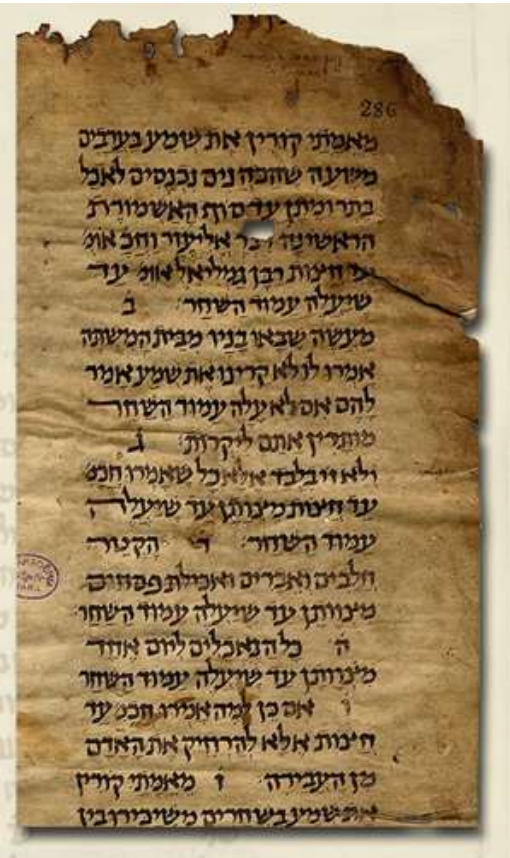 286
מאמתי קורין את שמע בערבים
משעה שהכהנים נכנסים לאכל
בתרומתן עד סוף האשמורת
הראשונה דבר אליעזר וחכ אומ
עד חצות רבן גמליאל אומ עד
שיעלה עמוד השחר ב
מעשה שבאו בניו מבית המשתה
אמרו לו לא קרינו את שמע אמר
להם אם לא עלה עמוד השחר
מותרין אתם ליקרות ג
ולא זו בלבד אלא כל שאמרו חכמ
עד חצות מצותן עד שיעלה
עמוד השחר ד הקטר
חלבים ואברים ואכילת פסחים
מצוותן עד שיעלה עמוד השחר
ה כל הנאכלים ליום אחד
מצוותן עד שיעלה עמוד השחר
אם כן למה אמרו חכמ עד
חצות אלא להרחיק את האדם
מן העבירה ז מאמתי קורין
את שמע בשחרים משיכירו בין